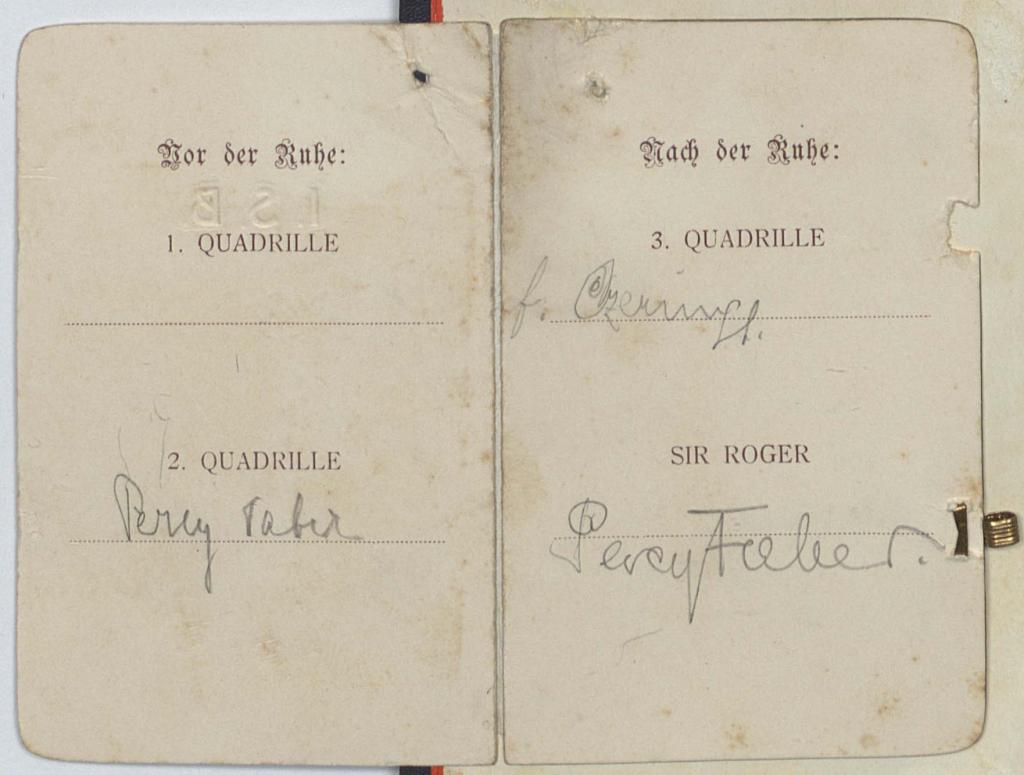 Vor der Ruhe:
LSB
1. QUADRILLE
2. QUADRILLE
Percy Taber
Nach der Ruhe:
3. QUADRILLE
f.
SIR ROGER
Percy Faeber.